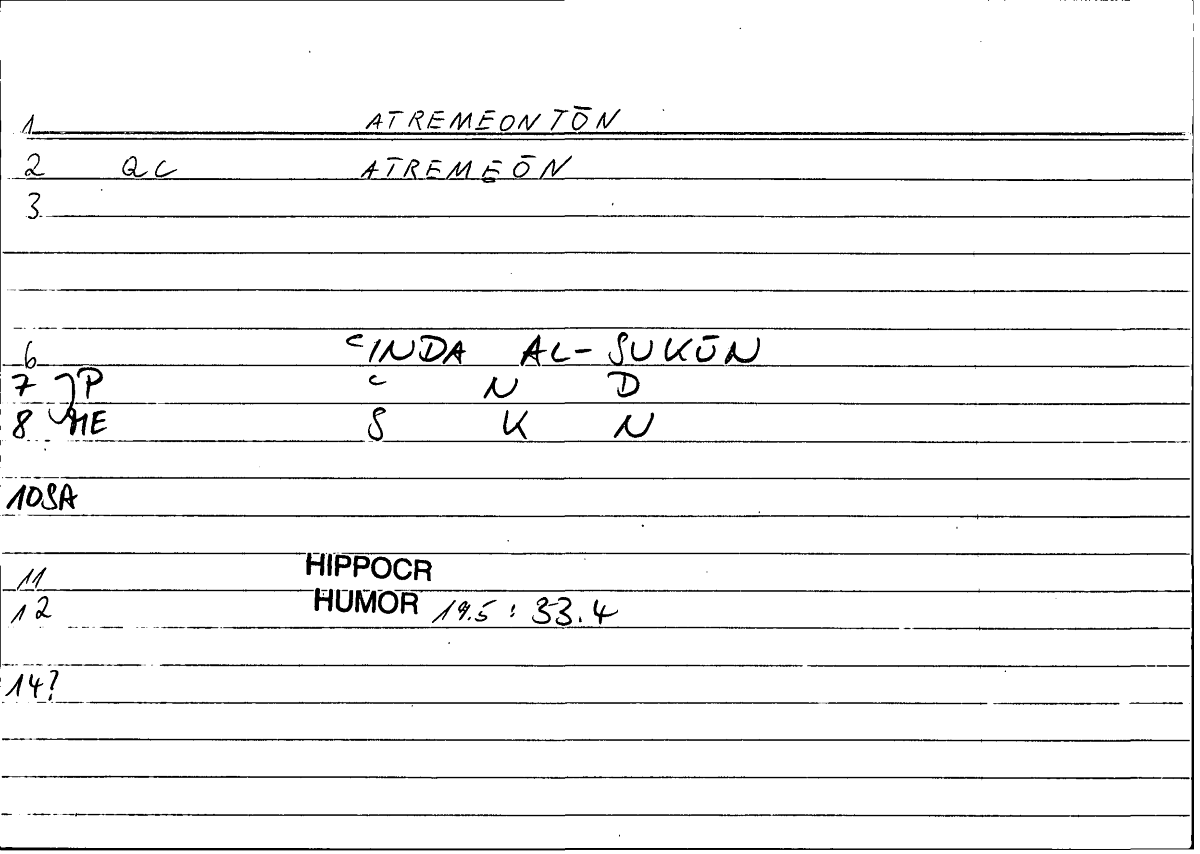 1 ATREMEONTŌN
2 QC ATREMEŌN
3
6 ʿINDA AL-SUKŪN
7 P ʿ N D
8 ME S K N
10 SA
11 HIPPOCR
12 HUMOR 19.5 : 33.4
14?